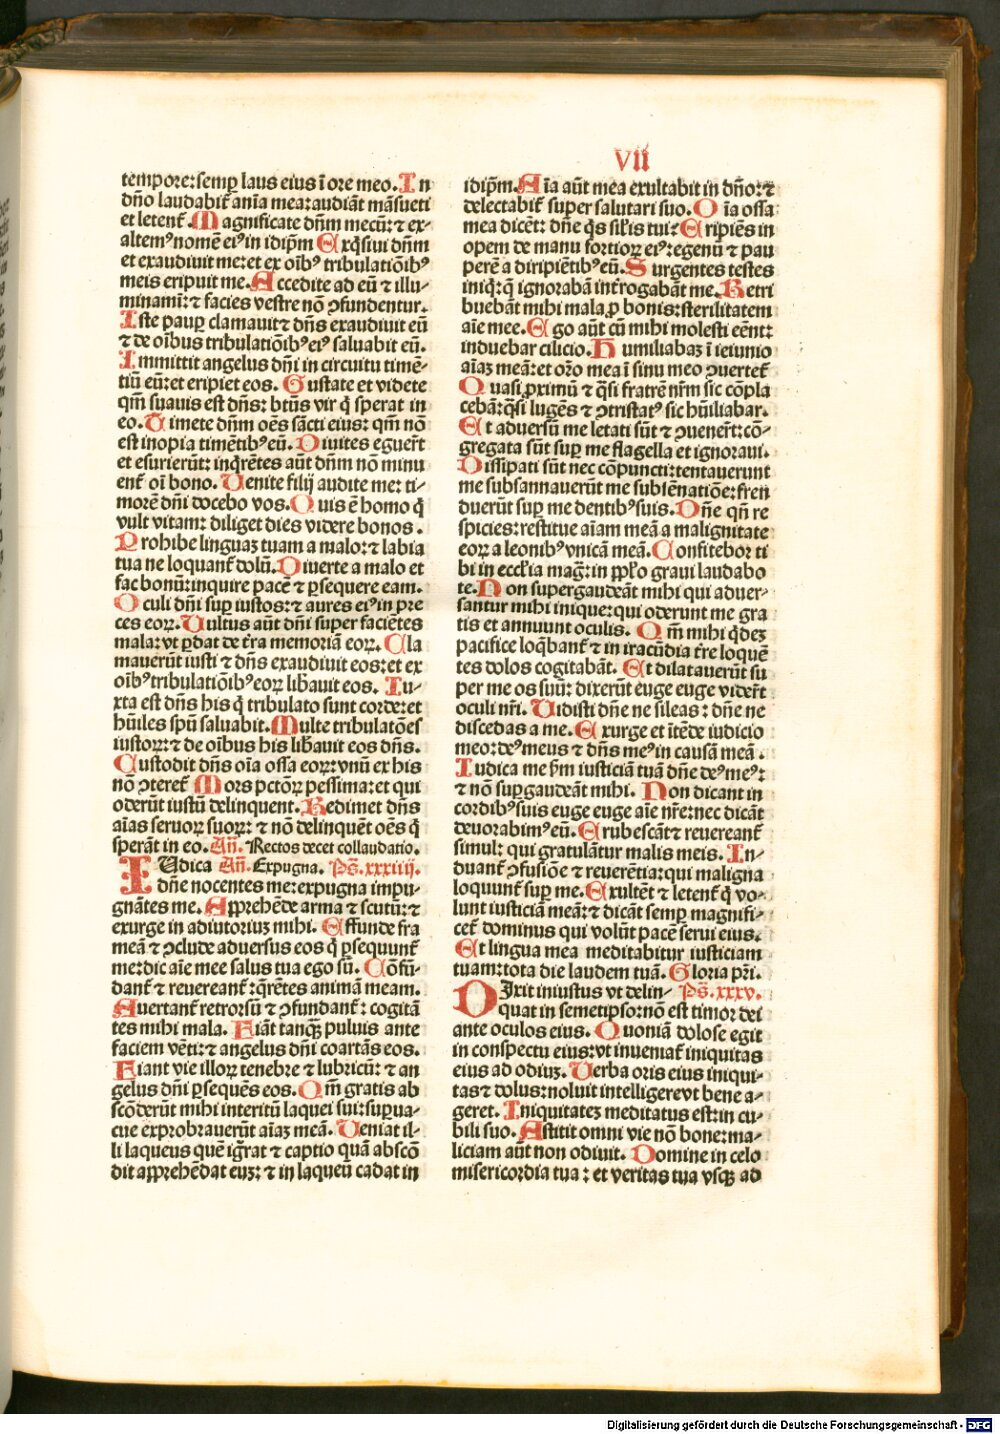 VII
tempore: semꝑ laus eius ī ore meo. In
dño laudabit᷑ anīa mea: audiāt māsueti
et letent᷑. Magnificate dñm mecū: ⁊ ex⸗
altemꝰ nomē eiꝰ in idip̄m Exq̄siui dñm
et exaudiuit me: et ex oībꝰ tribulatiōībꝰ
meis eripuit me. Accedite ad eū ⁊ illu⸗
minamī: ⁊ facies vestre nō ꝯfundentur.
Iste paup̲ clamauit ⁊ dñs exaudiuit eū
⁊ de oībus tribulatiōībꝰ eiꝰ saluabit eū.
Immittit angelus dñi in circuitu timē⸗
tiū eū: et eripiet eos. Gustate et videte
qm̄ suauis est dñs: btūs vir q̇ sperat in
eo. Timete dñm oēs sācti eius: qm̄ nō
est inopia timētibꝰ eū. Diuites eguer̄t
et esurierūt: inq̇rētes aūt dñm nō minu
ent᷑ oī bono. Uenite filij audite me: ti⸗
morē dñi docebo vos. Quis ē homo q̇
vult vitam: diliget dies videre bonos.
Prohibe linguaꝫ tuam a malo: ⁊ labia
tua ne loquant᷑ dolū. Diuerte a malo et
fac bonū: inquire pacē ⁊ ꝑsequere eam.
Oculi dñi suꝑ iustos: ⁊ aures eiꝰ in pre
ces eoꝝ. Uultus aūt dñi super faciētes
mala: vt ꝑdat de t̄ra memoriā eoꝝ. Cla
mauerūt iusti ⁊ dñs exaudiuit eos: et ex
oībꝰ tribulatiōībꝰ eoꝝ lib̄auit eos. Iu⸗
xta est dñs his q̇ tribulato sunt corde: et
hūiles spū saluabit. Multe tribulatōes
iustoꝝ: ⁊ de oībus his lib̄auit eos dñs.
Custodit dñs oīa ossa eoꝝ: vnū ex his
nō ꝯteret᷑ Mors pctōꝝ pessima: et qui
oderūt iustū delinquent. Redimet dñs
aīas seruoꝝ suoꝝ: ⁊ nō delinquēt oēs q̇
sperāt in eo. Añ. Rectos decet collaudatio.
IUdica Añ. Expugna. Pš. xxxiiij.
dñe nocentes me: expugna impu⸗
gnātes me. Apprehēde arma ⁊ scutū: ⁊
exurge in adiutoriuꝫ mihi. Effunde fra
meā ⁊ ꝯclude aduersus eos q̇ ꝑsequunt᷑
me: dic aīe mee salus tua ego sū. Cōfū⸗
dant᷑ ⁊ reuereant᷑: q̄rētes animā meam.
Auertant᷑ retrorsū ⁊ ꝯfundant᷑: cogitā
tes mihi mala. Fiāt tanqꝫ puluis ante
faciem vēti: ⁊ angelus dñi coartās eos.
Fiant vie illoꝝ tenebre ⁊ lubricū: ⁊ an
gelus dñi ꝑsequēs eos. Qm̄ gratis ab
scōderūt mihi interitū laquei sui: suꝑua⸗
cue exprobrauerūt aīaꝫ meā. Ueniat il⸗
li laqueus quē ign̄rat ⁊ captio quā abscō
dit apprehēdat euꝫ: ⁊ in laqueū cadat in
idip̄m. Aīa aūt mea exultabit in dño: ⁊
delectabit᷑ super salutari suo. Oīa ossa
mea dicēt: dñe q̇s sil̄is tui: Eripiēs in
opem de manu fortioꝝ eiꝰ: egenū ⁊ pau
perē a diripiētibꝰ eū. Surgentes testes
iniq̇: q̄ ignorabā int̄rogabāt me. Retri
buebāt mihi mala ꝓ bonis: sterilitatem
aīe mee. Ego aūt cū mihi molesti eēnt:
induebar cilicio. Humiliabaꝫ ī ieiunio
aīaꝫ meā: et or̄o mea ī sinu meo ꝯuertet᷑
Quasi ꝓximū ⁊ q̄si fratrē nr̄m sic cōpla
cebā: q̄si lugēs ⁊ ꝯtristatꝰ sic hūiliabar.
Et aduersū me letati sūt ⁊ ꝯuener̄t: cō⸗
gregata sūt suꝑ me flagella et ignoraui.
Dissipati sūt nec cōpuncti: tentauerunt
me subsannauerūt me subsēnatiōe: fren
duerūt suꝑ me dentibꝰ suis. Dñe qn̄ re
spicies: restitue aīam meā a malignitate
eoꝝ a leonibꝰ vnicā meā. Confitebor ti
bi in eccl̄ia mag̃: in pp̄lo graui laudabo
te. Non supergaudeāt mihi qui aduer⸗
santur mihi inique: qui oderunt me gra
tis et annuunt oculis. Qm̄ mihi q̇deꝫ
pacifice loq̄bant᷑ ⁊ in iracūdia t̄re loquē
tes dolos cogitabāt. Et dilatauerūt su
per me os suū: dixerūt euge euge vider̄t
oculi nr̄i. Uidisti dñe ne sileas: dñe ne
discedas a me. Exurge et ītēde iudicio
meo: deꝰ meus ⁊ dñs meꝰ in causā meā.
Iudica me ẜm iusticiā tuā dñe deꝰ meꝰ:
⁊ nō suꝑgaudeāt mihi. Non dicant in
cordibꝰ suis euge euge aīe nr̄e: nec dicāt
deuorabimꝰ eū. Erubescāt ⁊ reuereant᷑
simul: qui gratulātur malis meis. In⸗
duant᷑ ꝯfusiōe ⁊ reuerētia: qui maligna
loquunt᷑ suꝑ me. Exultēt ⁊ letent᷑ q̇ vo⸗
lunt iusticiā meā: ⁊ dicāt semꝑ magnifi⸗
cet᷑ dominus qui volūt pacē serui eius.
Et lingua mea meditabitur iusticiam
tuam: tota die laudem tuā. Gloria pr̄i.
DIxit iniustus vt delin⸗ Pš. xxxv.
quat in semetipso: nō est timor dei
ante oculos eius. Quoniā dolose egit
in conspectu eius: vt inueniat᷑ iniquitas
eius ad odiuꝫ. Uerba oris eius iniqui⸗
tas ⁊ dolus: noluit intelligere vt bene a⸗
geret. Iniquitateꝫ meditatus est: in cu⸗
bili suo. Astitit omni vie nō bone: ma⸗
liciam aūt non odiuit. Domine in celo
misericordia tua: et veritas tua vsqꝫ ad
Digitalisierung gefördert durch die Deutsche Forschungsgemeinschaft - DFG